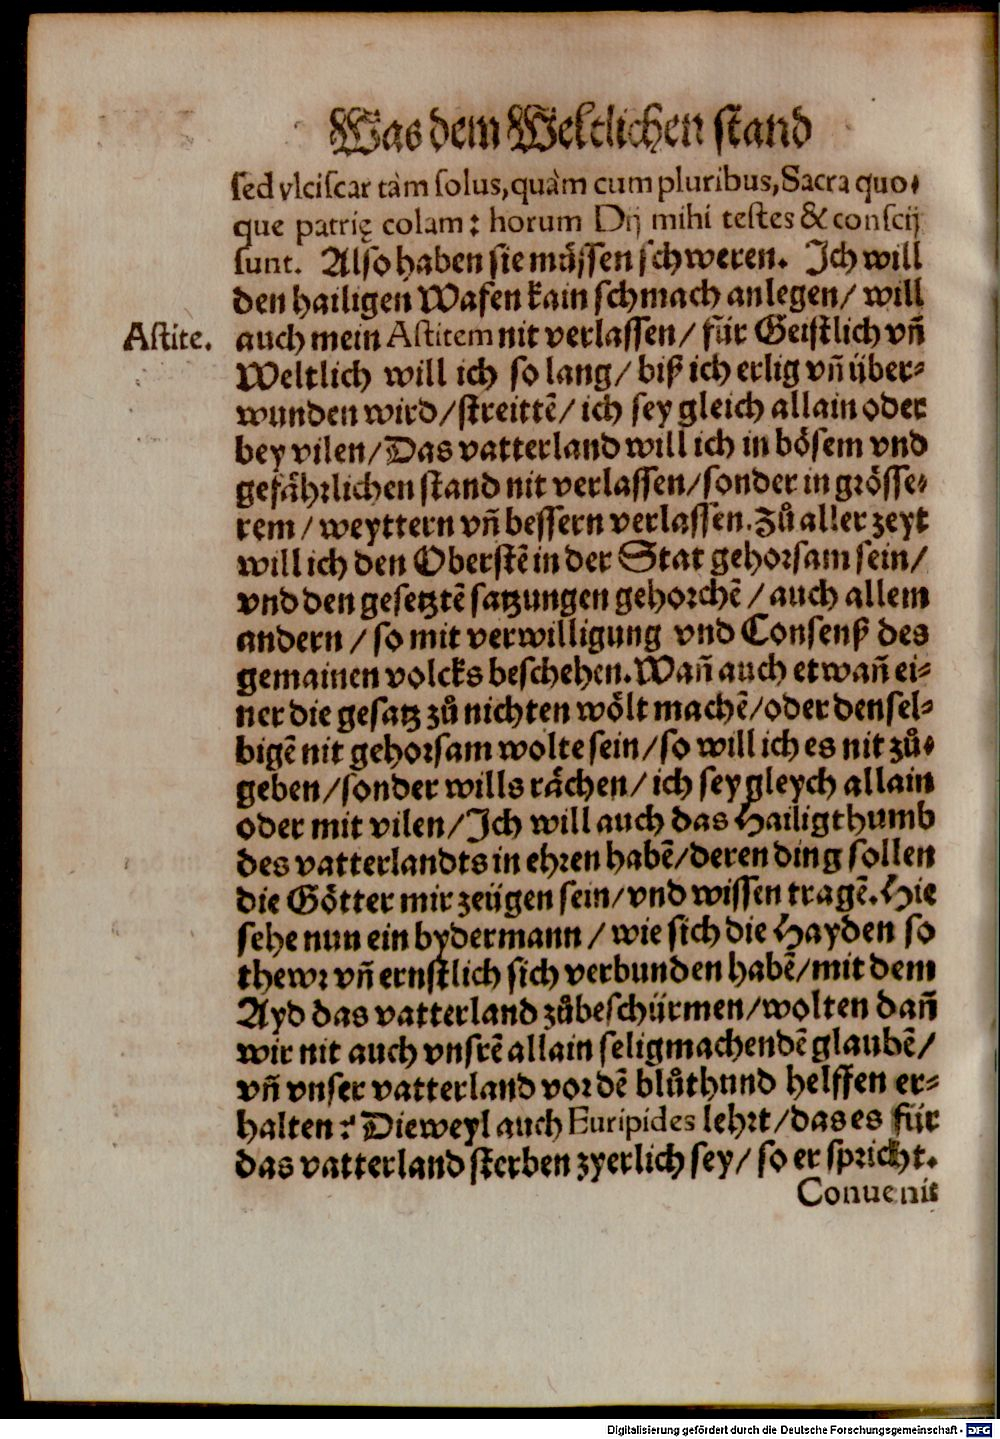 Was dem Weltlichen stand
sed vlciscar tàm solus, quàm cum pluribus, Sacra quo-
que patrię colam: horum Dij mihi testes & conscij
sunt. Also haben sie müssen schweren. Ich will
den hailigen Wafen kain schmach anlegen/ will
Astite.
auch mein Astitem nit verlassen/ für Geistlich vñ
Weltlich will ich so lang/ biß ich erlig vñ über-
wunden wird/ streittẽ/ ich sey gleich allain oder
bey vilen/ Das vatterland will ich in bösem vnd
gefährlichen stand nit verlassen/ sonder in grösse-
rem/ weyttern vñ bessern verlassen. Zů aller zeyt
will ich den Oberstẽ in der Stat gehorsam sein/
vnd den gesetztẽ satzungen gehorchẽ/ auch allem
andern/ so mit verwilligung vnd Consenß des
gemainen volcks beschehen. Wañ auch etwañ ei-
ner die gesatz zů nichten wölt machẽ/ oder densel-
bigẽ nit gehorsam wolte sein/ so will ich es nit zů-
geben/ sonder wills rächen/ ich sey gleych allain
oder mit vilen/ Ich will auch das Hailigthumb
des vatterlandts in ehren habẽ/ deren ding sollen
die Götter mir zeügen sein/ vnd wissen tragẽ. Hie
sehe nun ein bydermann/ wie sich die Hayden so
thewr vñ ernstlich sich verbunden habẽ/ mit dem
Ayd das vatterland zůbeschürmen/ wolten dañ
wir nit auch vnsrẽ allain seligmachendẽ glaubẽ/
vñ vnser vatterland vor dẽ blůthund helffen er-
halten? Dieweyl auch Euripides lehrt/ das es für
das vatterland sterben zyerlich sey/ so er spricht.
Conuenit
Digitalisierung gefördert durch die Deutsche Forschungsgemeinschaft - DFG